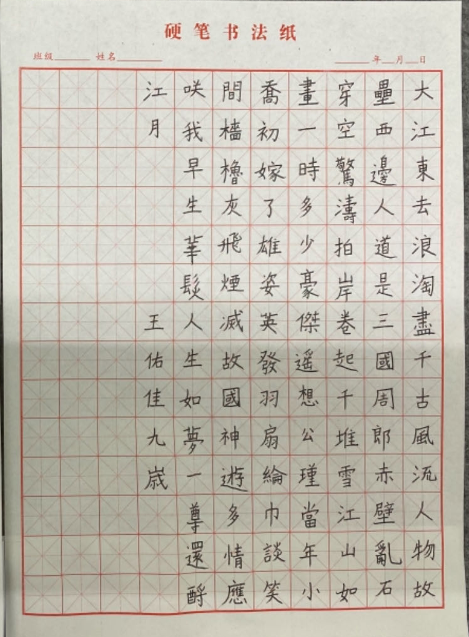 硬笔书法纸
班级 姓名 年 月 日
大江東去浪淘盡千古風流人物故
壘西邊人道是三國周郎赤壁亂石
穿空驚濤拍岸卷起千堆雪江山如
畫一時多少豪傑遥想公瑾當年小
喬初嫁了雄姿英發羽扇綸巾談笑
間檣櫓灰飛煙滅故國神遊多情應
咲我早生華髮人生如夢一尊還酹
江月
王佑佳九歲